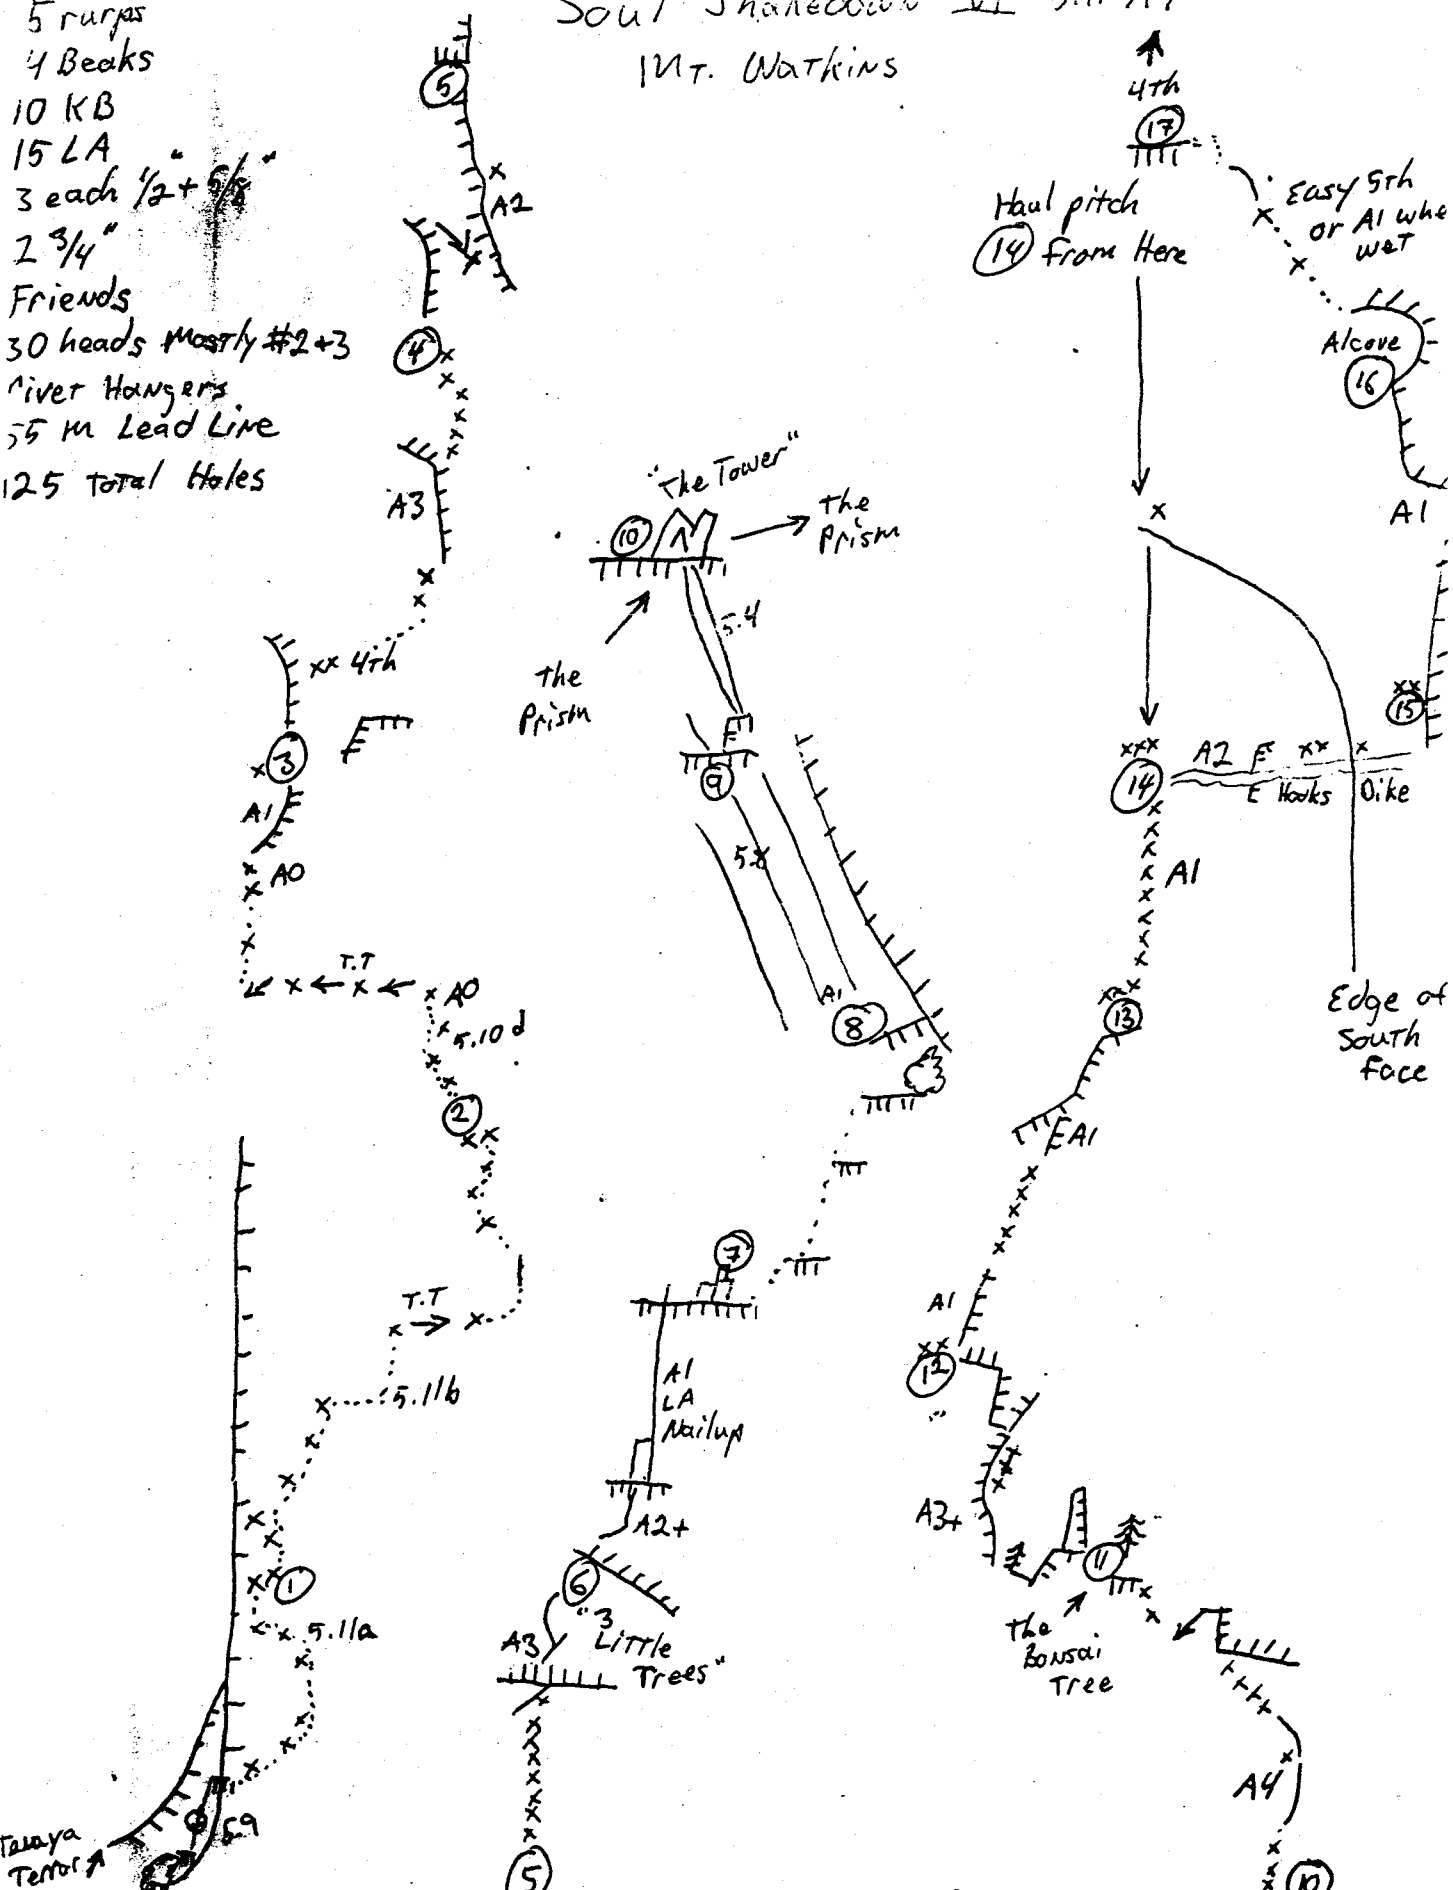 Soul Shakedown VI
Mt. Watkins
5 rurps
4 Beaks
10 KB
15 LA
3 each 1/2" + 5/8"
2 3/4"
Friends
30 heads Mostly #2+3
ivet Hangers
55 m Lead Line
125 total Holes
5
A2
4
A3
xx 4th
3
A1
A0
T.T
A0
5.10d
2
T.T
5.11b
1
5.11a
5.9
Tenaya
Terror
"The Tower"
10
The
Prism
5.4
The
Prism
9
5.8
A1
8
7
A1
LA
Nailup
A2+
6
"3
Little
Trees"
A3
5
4th
17
Haul pitch
14 from Here
Easy 5th
or A1 whe
wet
Alcove
16
A1
15
14
A2
Hooks
Dike
A1
Edge of
South
Face
13
A1
A1
12
A3+
11
The
Bonsai
Tree
A4
10